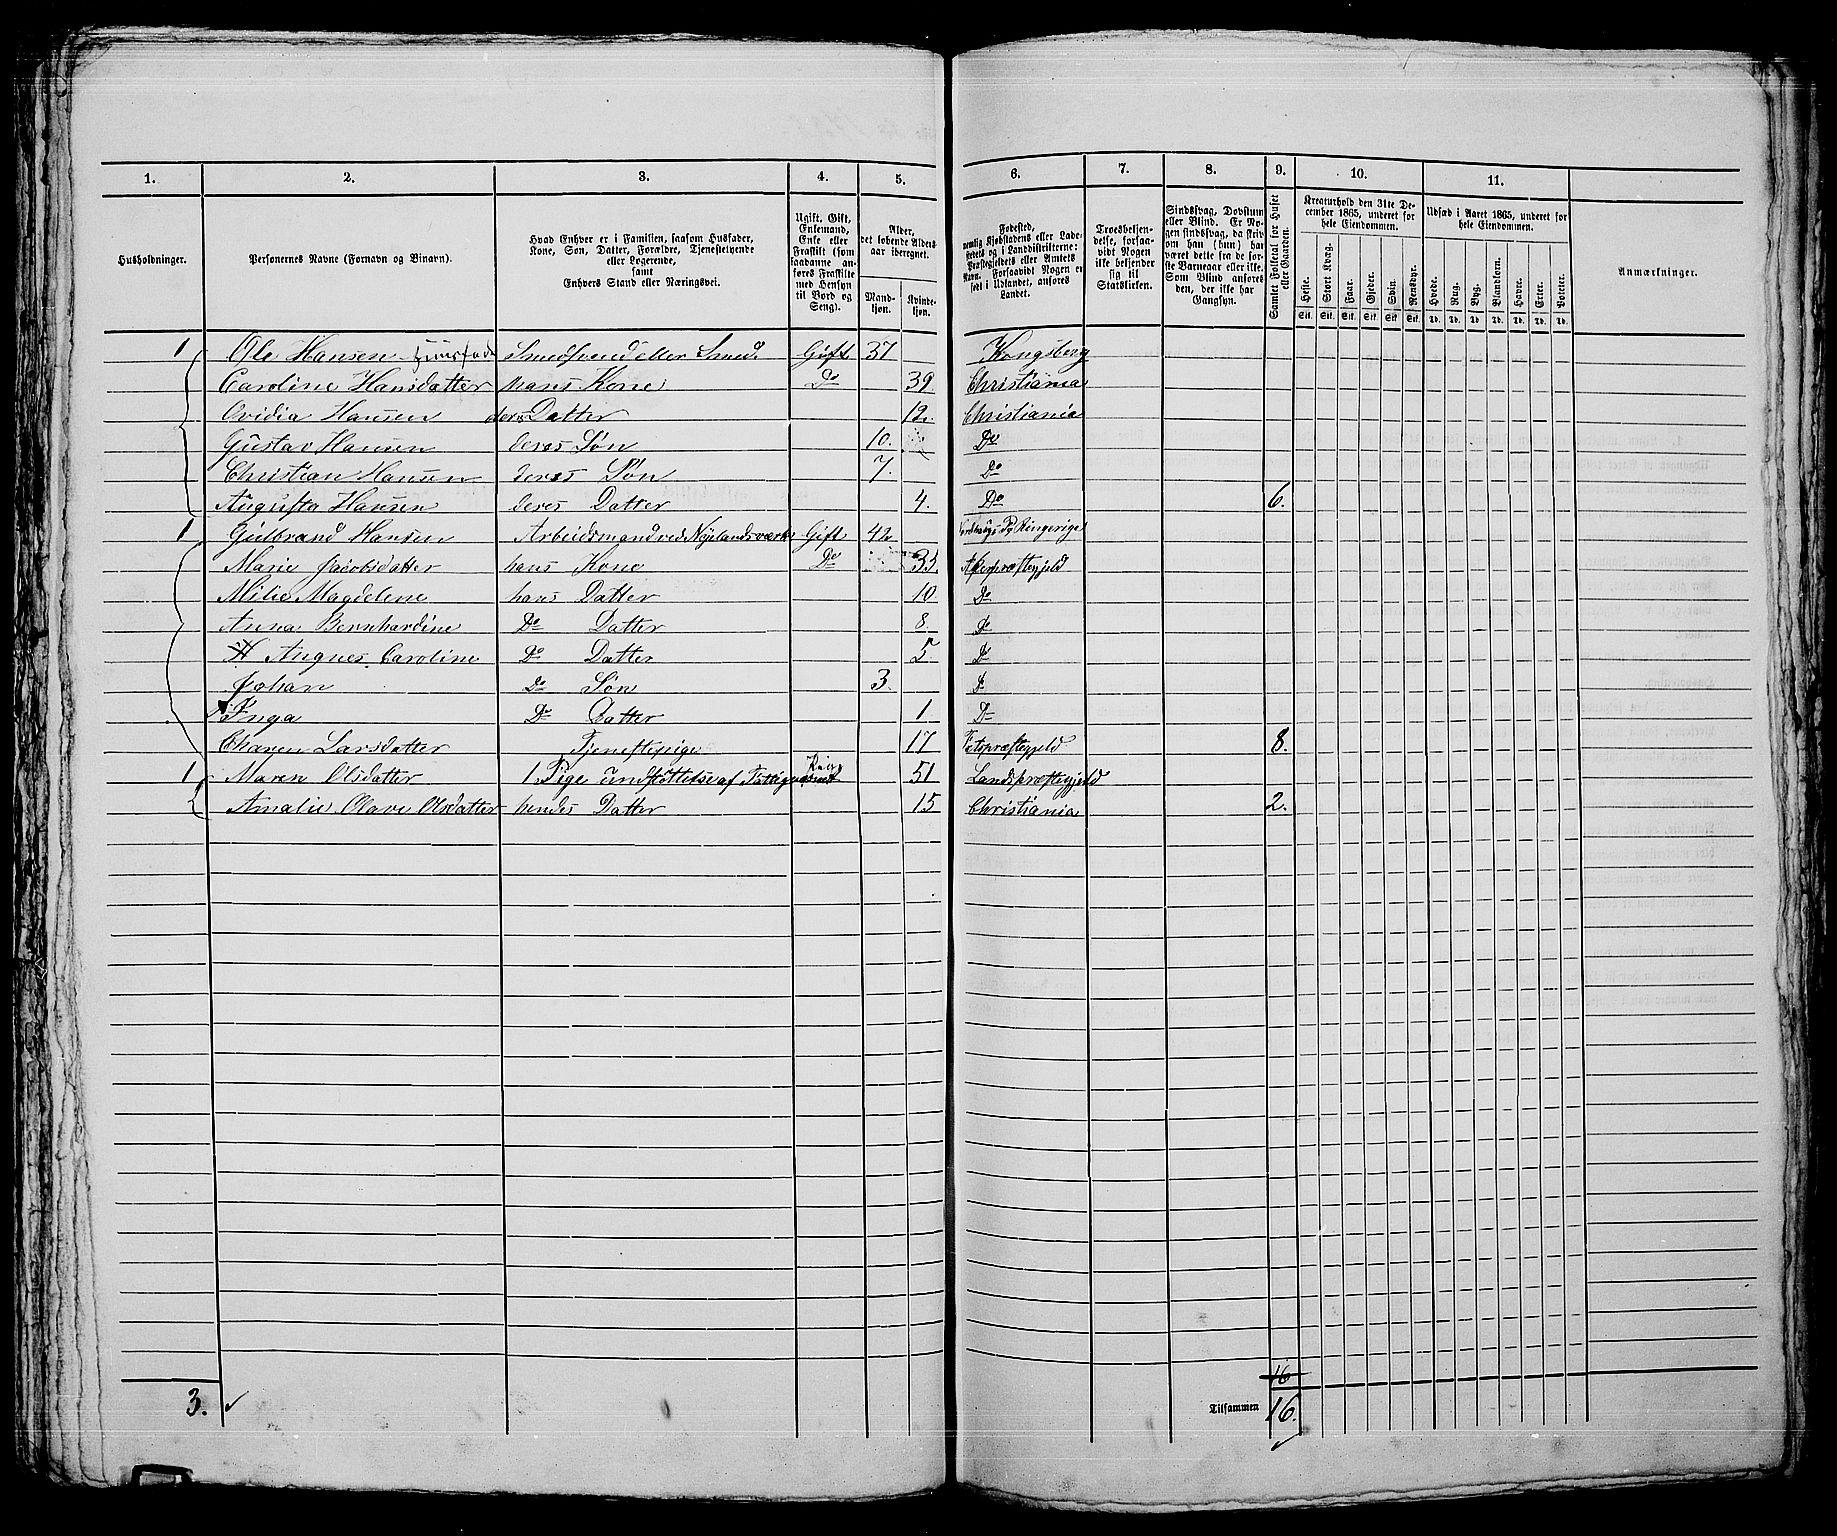 1. 2. 3. 4. 5. 6. 7. 8. 9. 10. 11.
Husholdninger.
Personernes Navne (Fornavn og Binavn).
Hvad Enhver er i Familien, saasom Husfader,
Kone, Søn, Datter, Forældre, Tjenestetyende
eller Logerende,
samt
Enhvers Stand eller Næringsvei.
Ugift, Gift,
Enkemand,
Enke eller
Fraskilt (som
saadanne an-
føres Fraskilte
med Hensyn
til Bord og
Seng).
Alder,
det løbende Alders-
aar iberegnet.
Mand-
kjøn.
Kvinde-
kjøn.
Fødested,
nemlig Kjøbstadens eller Lade-
stedets og i Landdistrikterne:
Præstegjeldets eller Amtets
Navn. Forsaavidt Nogen er
født i Udlandet, anføres
Landet.
Troesbekjen-
delse, forsaa-
vidt Nogen
ikke bekjender
sig til
Statskirken.
Sindssvag, Døvstum
eller Blind. Er No-
gen sindssvag, da skriv
om han (hun) har
været dette fra de før-
ste Barneaar eller ikke.
Som Blind anføres
den, der ikke har
Gangsyn.
Samlet Folketal for Huset
eller Gaarden.
Kreaturhold den 31te De-
cember 1865, underet for
hele Eiendommen.
Heste. Stort Kvæg. Faar. Gjeder. Svin. Rensdyr.
Stk. Stk. Stk. Stk. Stk. Stk.
Udsæd i Aaret 1865, underet for
hele Eiendommen.
Hvede. Rug. Byg. Blandkorn. Havre. Erter. Poteter.
Td. Td. Td. Td. Td. Td. Td.
Anmærkninger.
1 Ole Hansen Huusfader Smedsvend eller Smed Gift 37 Kongsberg
Caroline Hansdatter hans Kone Do 39. Christiania
Ovidia Hansen deres Datter 12. Christiania
Gustav Hansen deres Søn 10. Do
Christian Hansen deres Søn 7. Do
Augusta Hansen deres Datter 4. Do 6.
1 Gulbrand Hansen Arbeidsmand ved Nylandsværk Gift 42 Ringerige
Marie Jacobsdatter hans Kone Do 35. Akerpræstegjeld
Milie Magdelene hans Datter 10 Do
Anna Bernhardine Do Datter 8. Do
Angnes Caroline Do Datter 5 Do
Johan Do Søn 3. Do
Inga Do Datter 1 Do
Charen Larsdatter Tjenestepige 17 præstegjeld 8.
1 Maren Olsdatter 1 Pige undstøttelse af 51 Landspræstegjeld
Amalie Olave Olsdatter hendes Datter 15 Christiania 2.
16
3. Tilsammen 16.